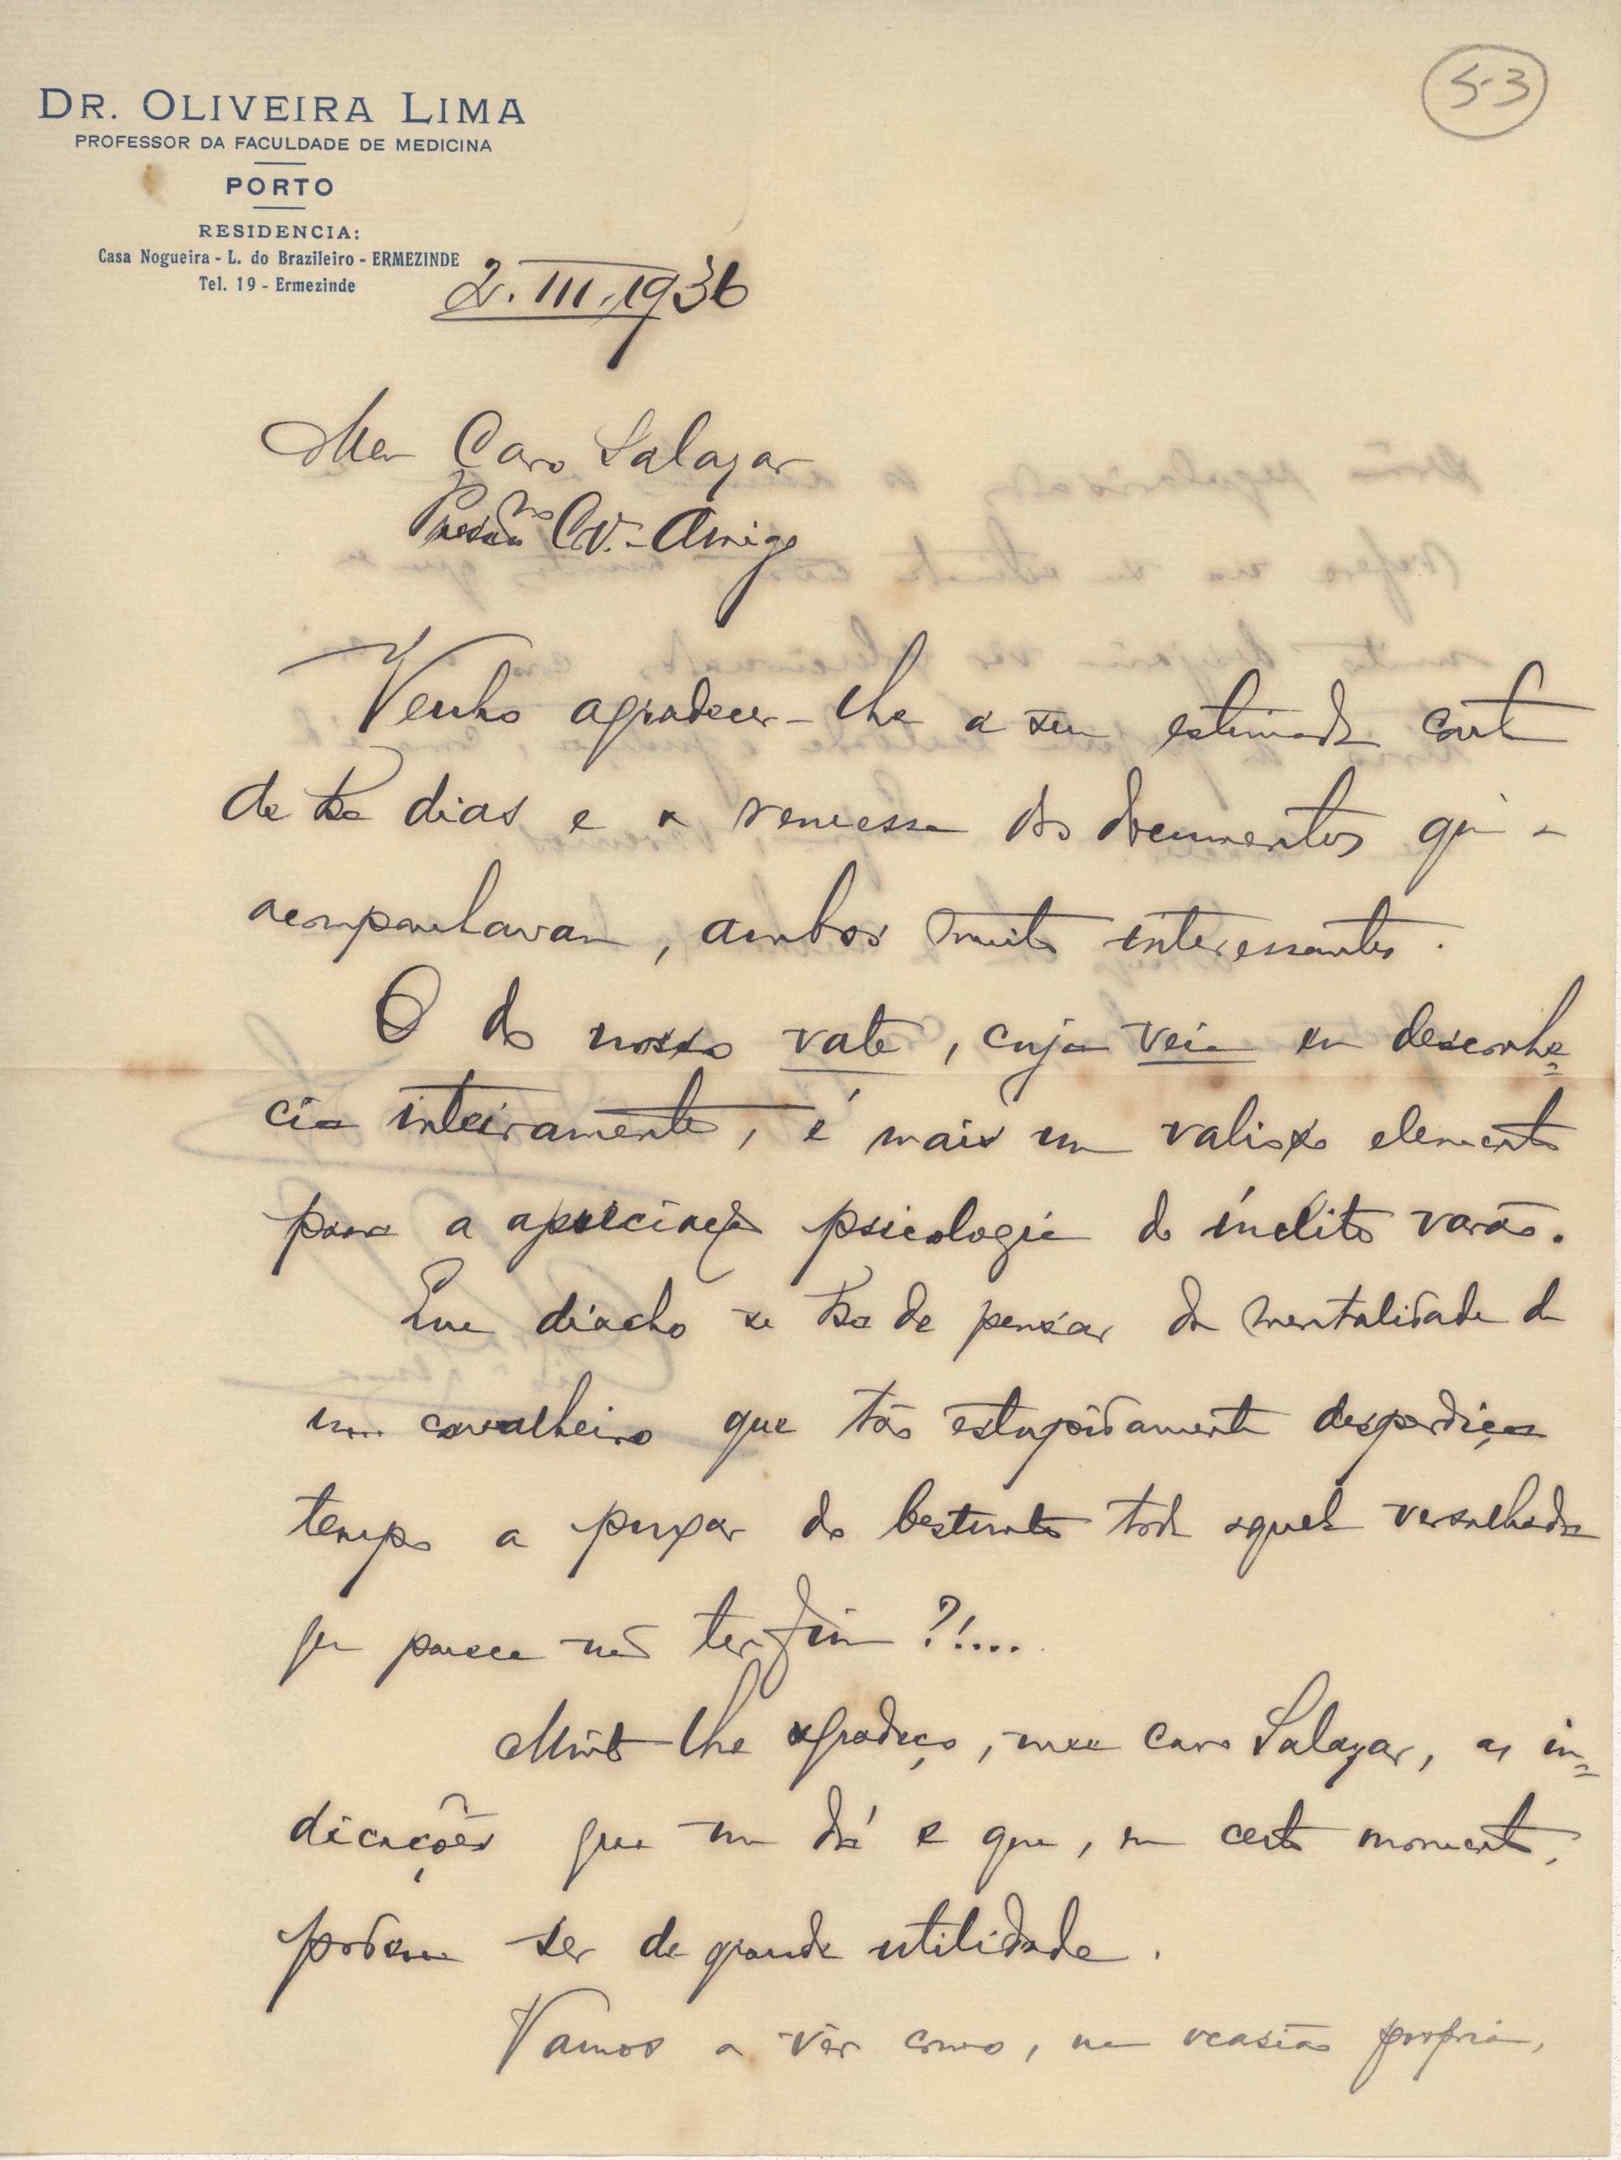 5-3
DR. OLIVEIRA LIMA
PROFESSOR DA FACULDADE DE MEDICINA
PORTO
RESIDENCIA:
Casa Nogueira - L. do Brazileiro - ERMEZINDE
Tel. 19 - Ermezinde
2.III.1936
Meu Caro Salazar
Amigo
Venho agradecer-lhe a sua estimada carta
de ha dias e a remessa dos documentos que a
acompanhavam, ambos muito interessantes.
O do nosso vate, cuja veia eu desconhe=
cia inteiramente, é mais um valioso elemento
para a apreciação psicologia do ínclito varão.
Que diacho se ha de pensar da mentalidade de
um cavalheiro que tão estupidamente desperdiça
tempo a puxar do bestunto toda aquela versalhada
que parece não ter fim ?!....
Muito lhe agradeço, meu caro Salazar, as in=
dicações que me dá e que, em certo momento,
podem ser de grande utilidade.
Vamos a vêr como, na ocasião propria,